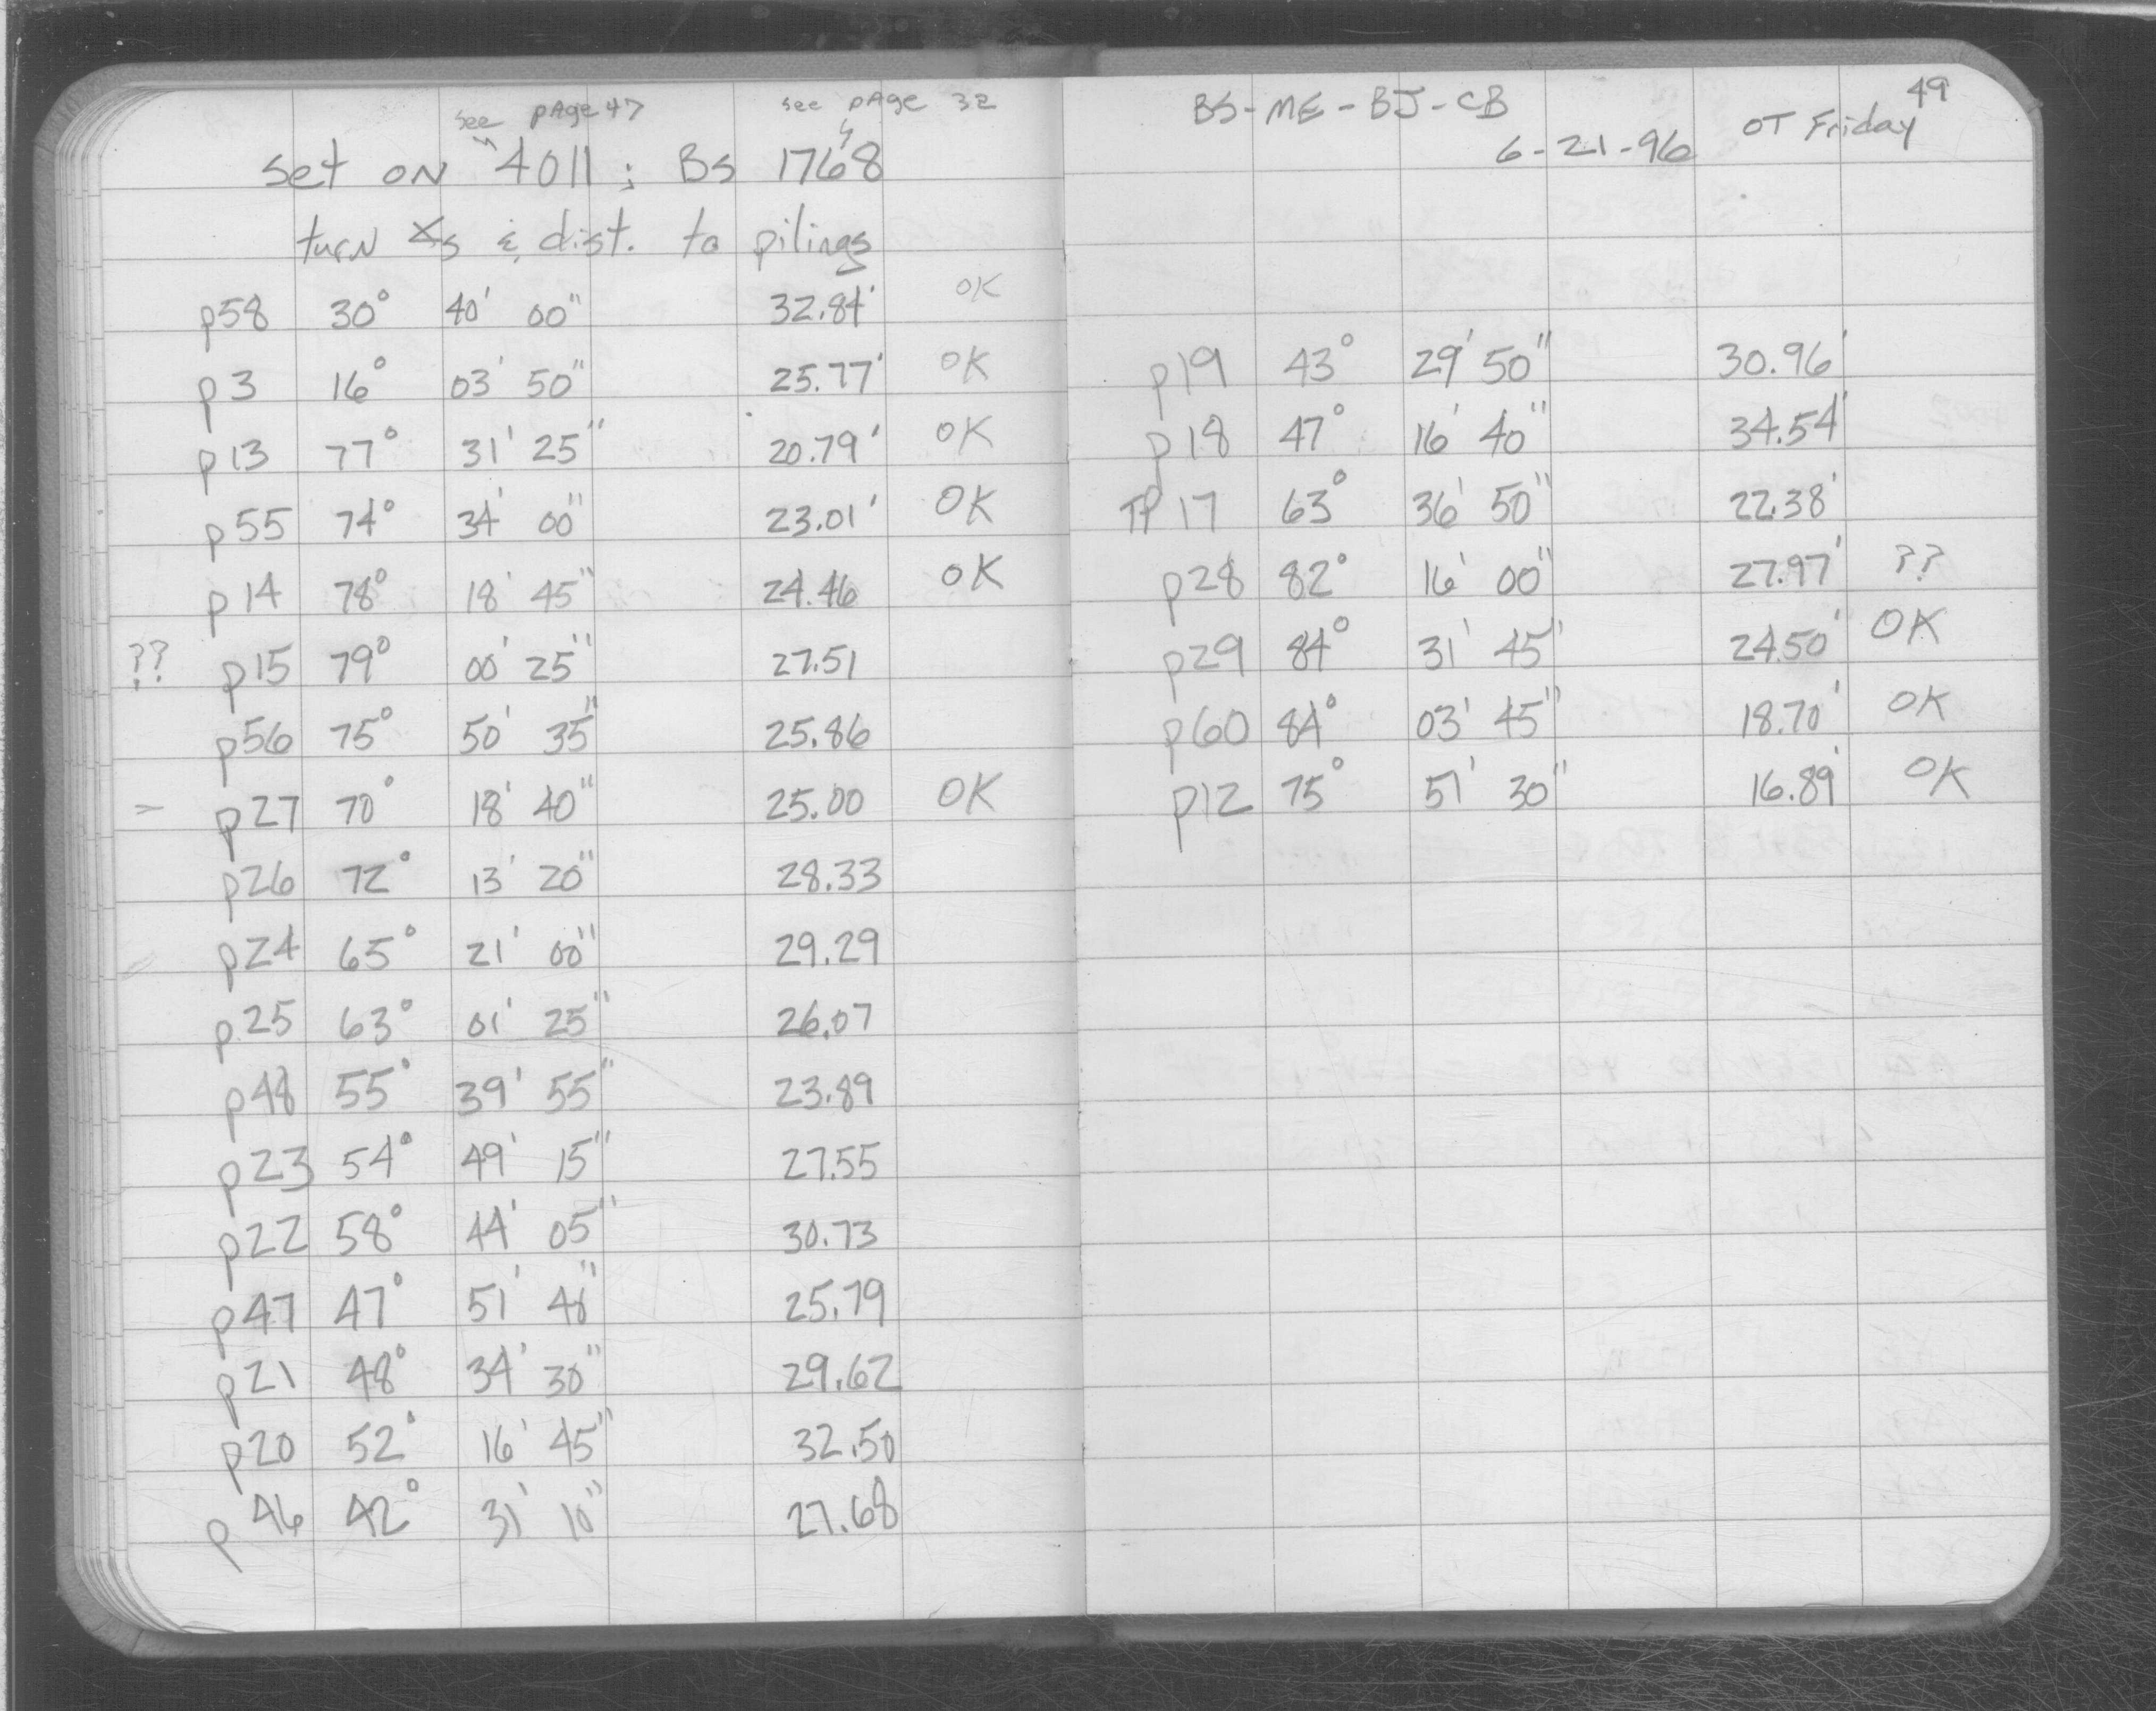 see page 47 see page 32
set on 4011; BS 1768
turn ∡s & dist. to pilings
p58 30° 40' 00" 32.84' OK
p3 16° 03' 50" 25.77' OK
p13 77° 31' 25" 20.79' OK
p55 74° 34' 00" 23.01' OK
p14 78° 18' 45" 24.46 OK
?? p15 79° 00' 25" 27.51
p56 75° 50' 35" 25.86
= p27 70° 18' 40" 25.00 OK
p26 72° 13' 20" 28.33
p24 65° 21' 00" 29.29
p25 63° 01' 25" 26.07
p48 55° 39' 55" 23.89
p23 54° 49' 15" 27.55
p22 58° 44' 05" 30.73
p47 47° 51' 25.79
p21 48° 34' 30" 29.62
p20 52° 16' 45" 32.50
p46 42° 31' 10" 27.68
49
BS-ME-BJ-CB
6-21-96 OT Friday
p19 43° 29' 50" 30.96'
p18 47° 16' 40" 34.54'
17 63° 36' 50" 22.38'
p28 82° 16' 00" 27.97' ??
p29 84° 31' 45" 24.50' OK
p60 84° 03' 45" 18.70' OK
p12 75° 51' 30" 16.89' OK